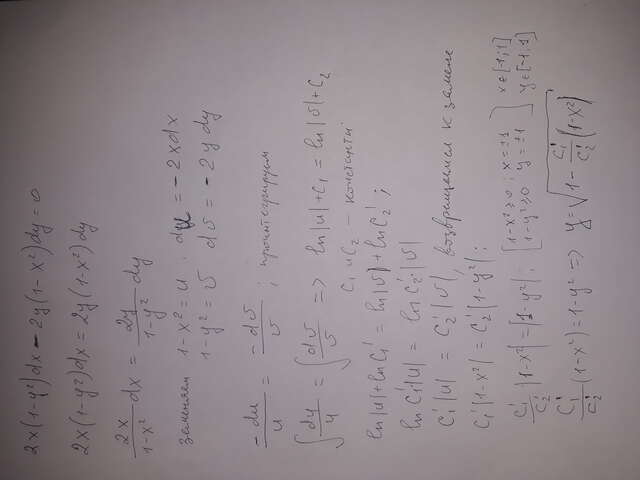 2x(1-y²)dx - 2y(1-x²)dy = 0
2x(1-y²)dx = 2y(1-x²)dy
2x/(1-x²) dx = 2y/(1-y²) dy
Заменяем 1-x² = u . du = -2xdx
1-y² = v dv = -2ydy
-du/u = -dv/v ; проинтегрируем
∫ du/u = ∫ dv/v => ln|u| + C₁ = ln|v| + C₂
C₁ и C₂ - константы
ln|u| + ln C₁' = ln|v| + ln C₂' ;
ln C₁'|u| = ln C₂'·|v|
C₁'|u| = C₂'|v|, возвращаемся к замене
C₁'|1-x²| = C₂'|1-y²| ;
C₁'/C₂' |1-x²| = |1-y²| ; [1-x²≥0 ; x=±1 ] x∈[-1;1]
1-y²≥0 y=±1 y∈[-1,1]
C₁'/C₂' (1-x²) = 1-y² => y = √(1 - C₁'/C₂' (1-x²))